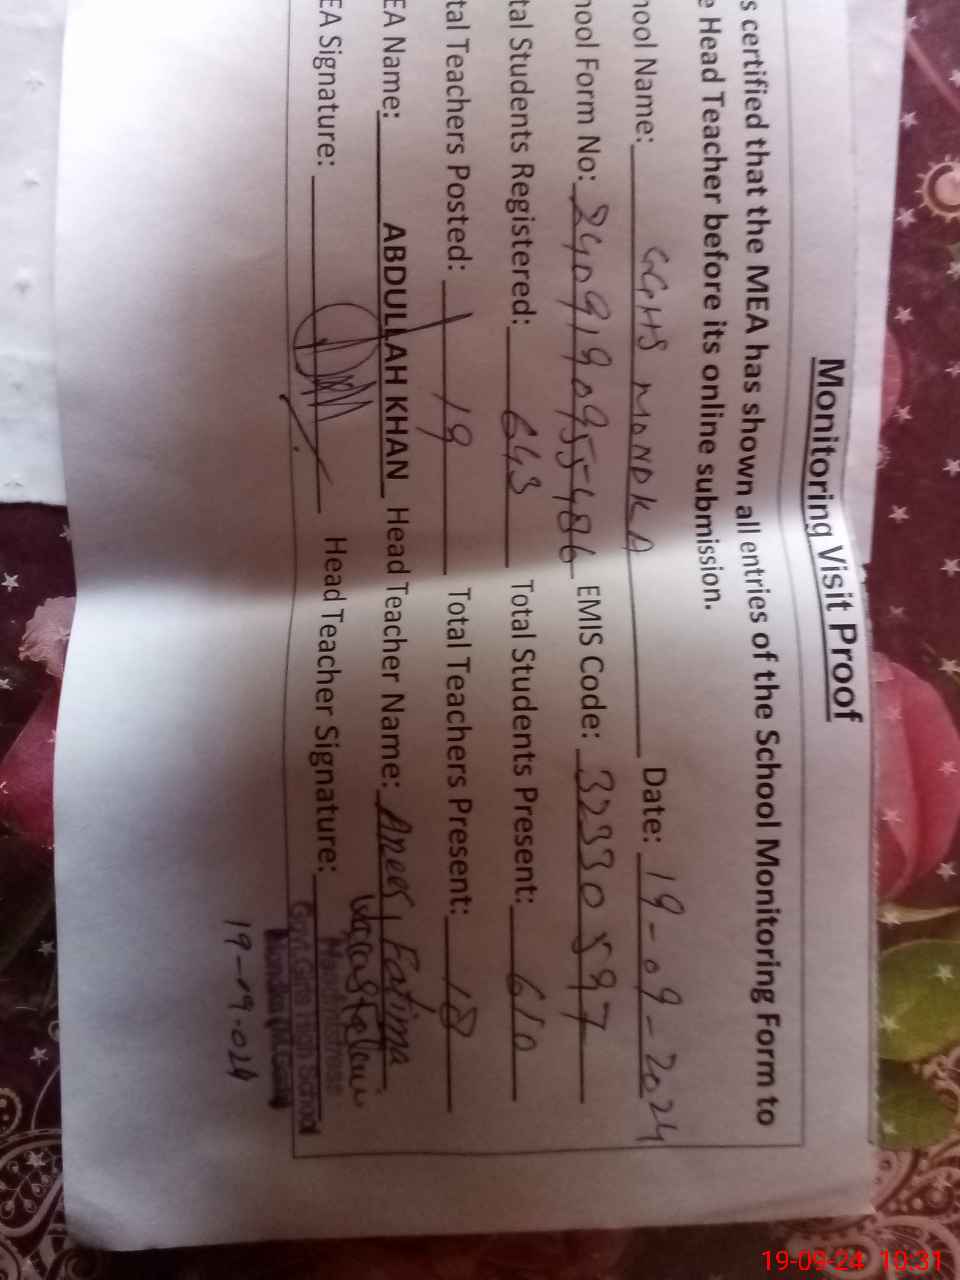 Monitoring Visit Proof
s certified that the MEA has shown all entries of the School Monitoring Form to
e Head Teacher before its online submission.
hool Name: GGHS MONDKA Date: 19-09-2024
hool Form No: 2409190955486 EMIS Code: 32330597
tal Students Registered: 643 Total Students Present: 610
tal Teachers Posted: 19 Total Teachers Present: 18
EA Name: ABDULLAH KHAN Head Teacher Name: Anees Fatima
EA Signature: Head Teacher Signature:
Headmistress
Govt. Girls High School
19-09-024
19-09-24 10:31